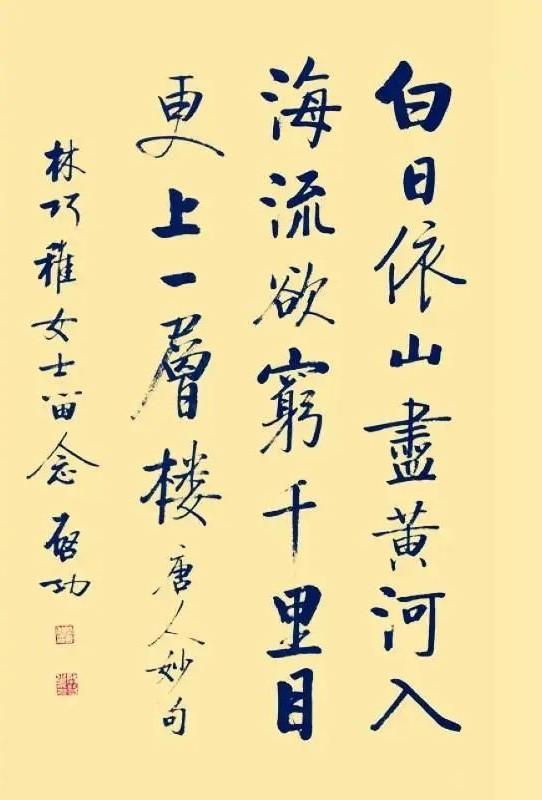 白日依山盡黄河入
海流欲窮千里目
更上一層楼唐人妙句
林巧稚女士留念啓功